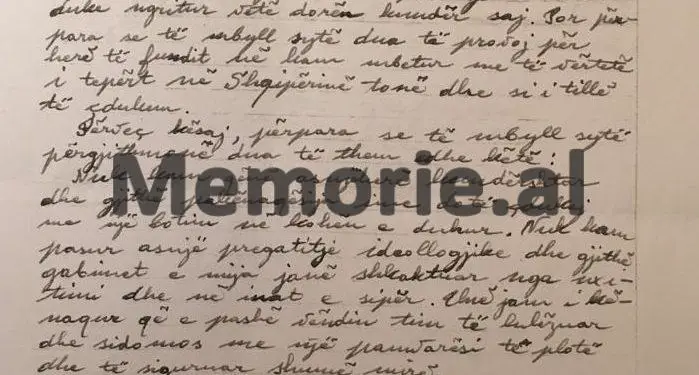 duke ngritur vetë dorën kundër saj. Por për-
para se të mbyll sytë dua të provoj për
herë të fundit në kam mbetur me të vërtetë
i tepërt në Shqipërinë tonë dhe si i tillë
të çdukem.
Përveç kësaj, përpara se të mbyll sytë
përgjithmonë dua të them edhe këtë:
Nuk kam qënë asnjëherë kundërshtar
Memorie.al
dhe gjithë
me një botim në kohën e dukur. Nuk kam
pasur asnjë pregatitje ideollogjike dhe gjithë
gabimet e mija janë shkaktuar nga nxi-
timi dhe në inat e sipër. Unë jam i kë-
naqur që e pashë vëndin tim të lulëzuar
dhe sidomos me një pamvarësi të plotë
dhe të siguruar shumë mirë